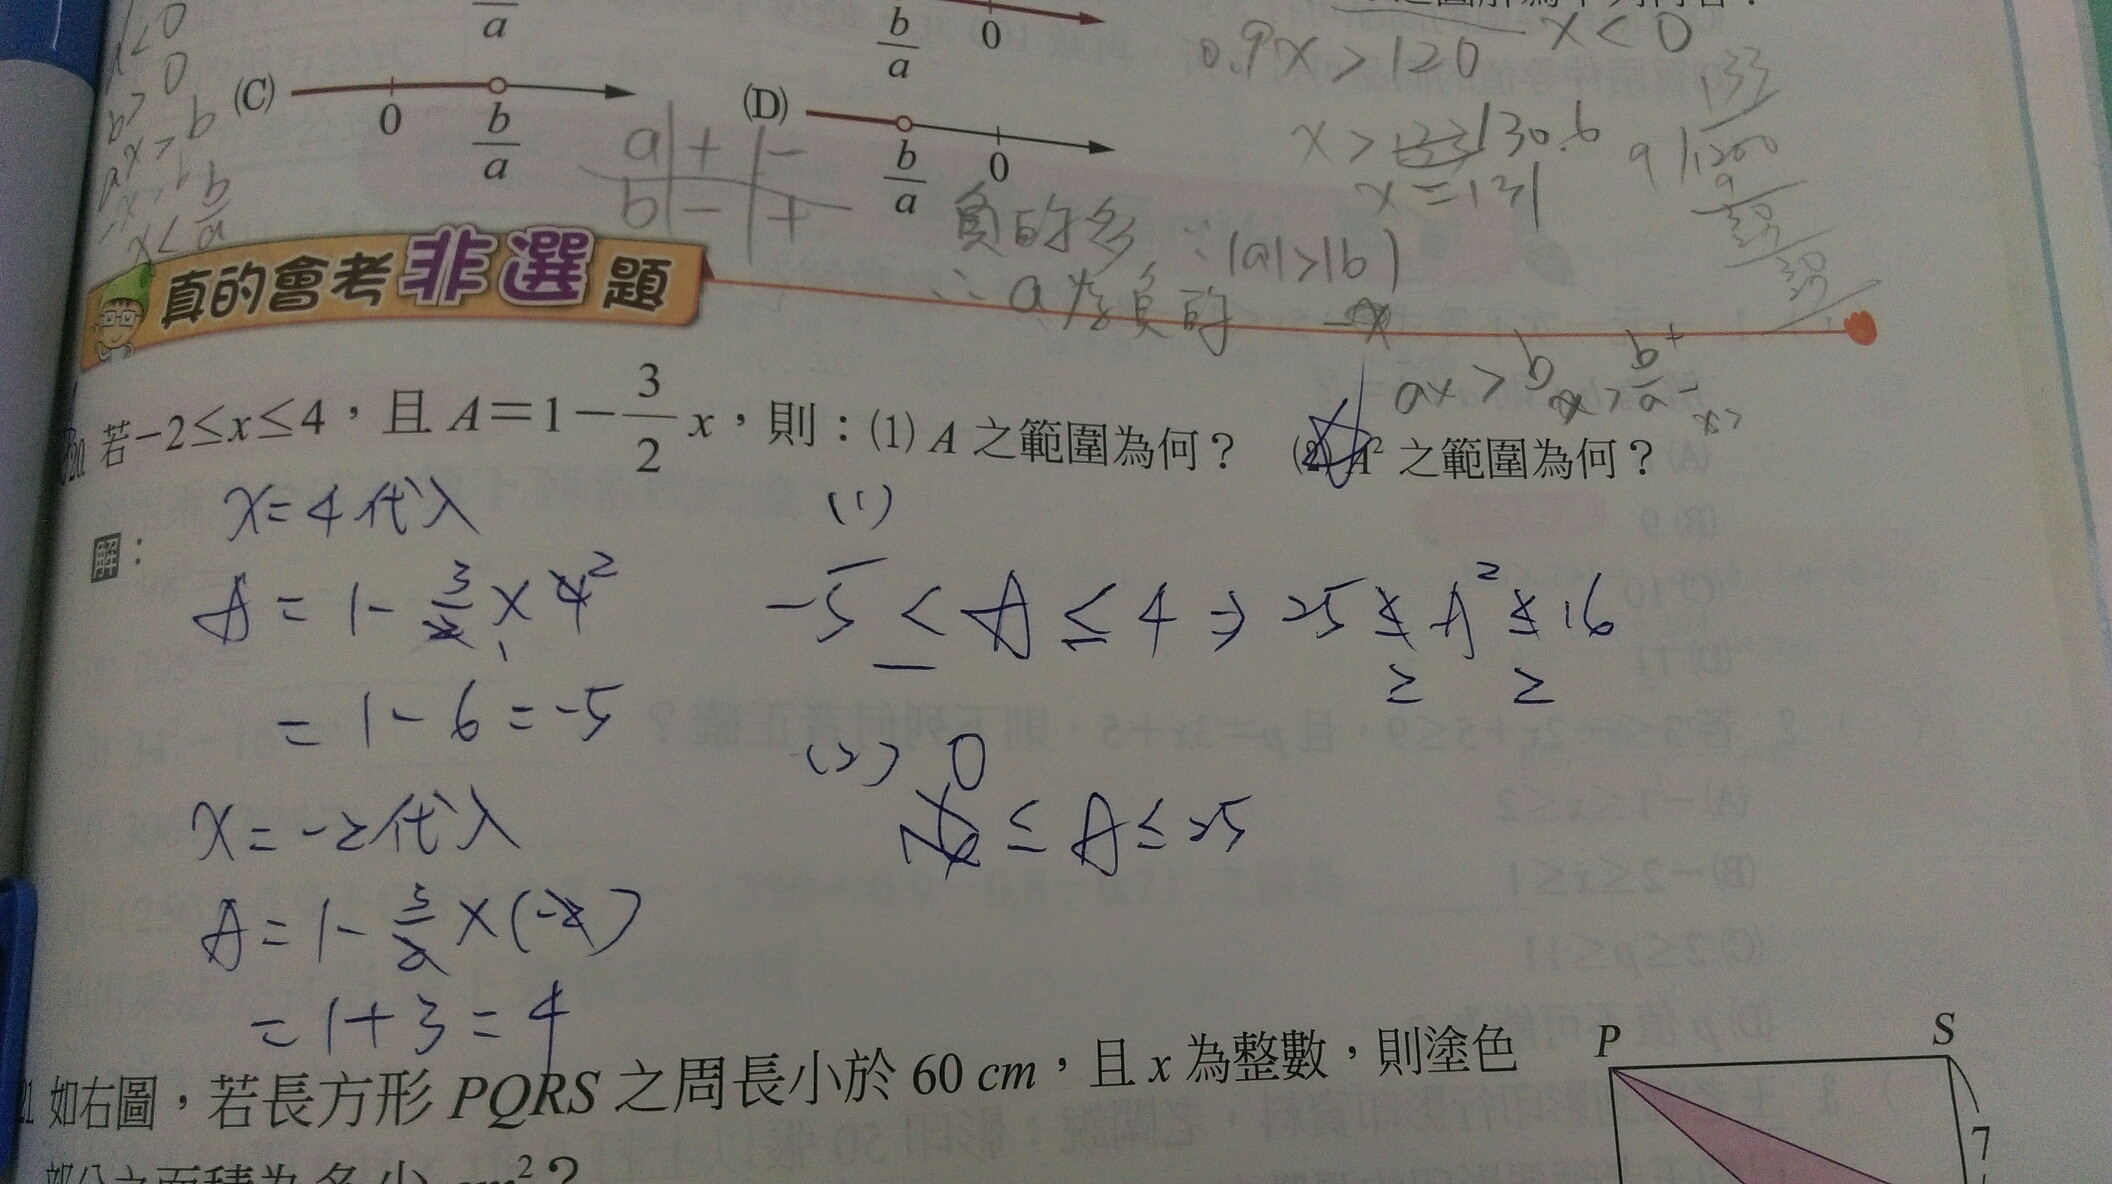 x<0
b>0
ax>b
x<b/a
a
b/a 0
0.9x>120 x<0
(C) 0 b/a
(D) b/a 0
a + -
b - +
x>130.6
x=131
133
9 1200
負的多 ∵|a|>|b|
∴a為負的
真的會考非選題
ax>b x>b/a
20. 若-2≤x≤4，且A=1-3/2x，則：(1) A之範圍為何？ (2) A²之範圍為何？
解：
x=4代入
A=1-3/2×4
=1-6=-5
x=-2代入
A=1-3/2×(-2)
=1+3=4
(1)
-5≤A≤4⇒25≥A²≥16
(2) 0
≤A≤25
21 如右圖，若長方形PQRS之周長小於60 cm，且x為整數，則塗色
部分之面積為多少cm²？
P S
7